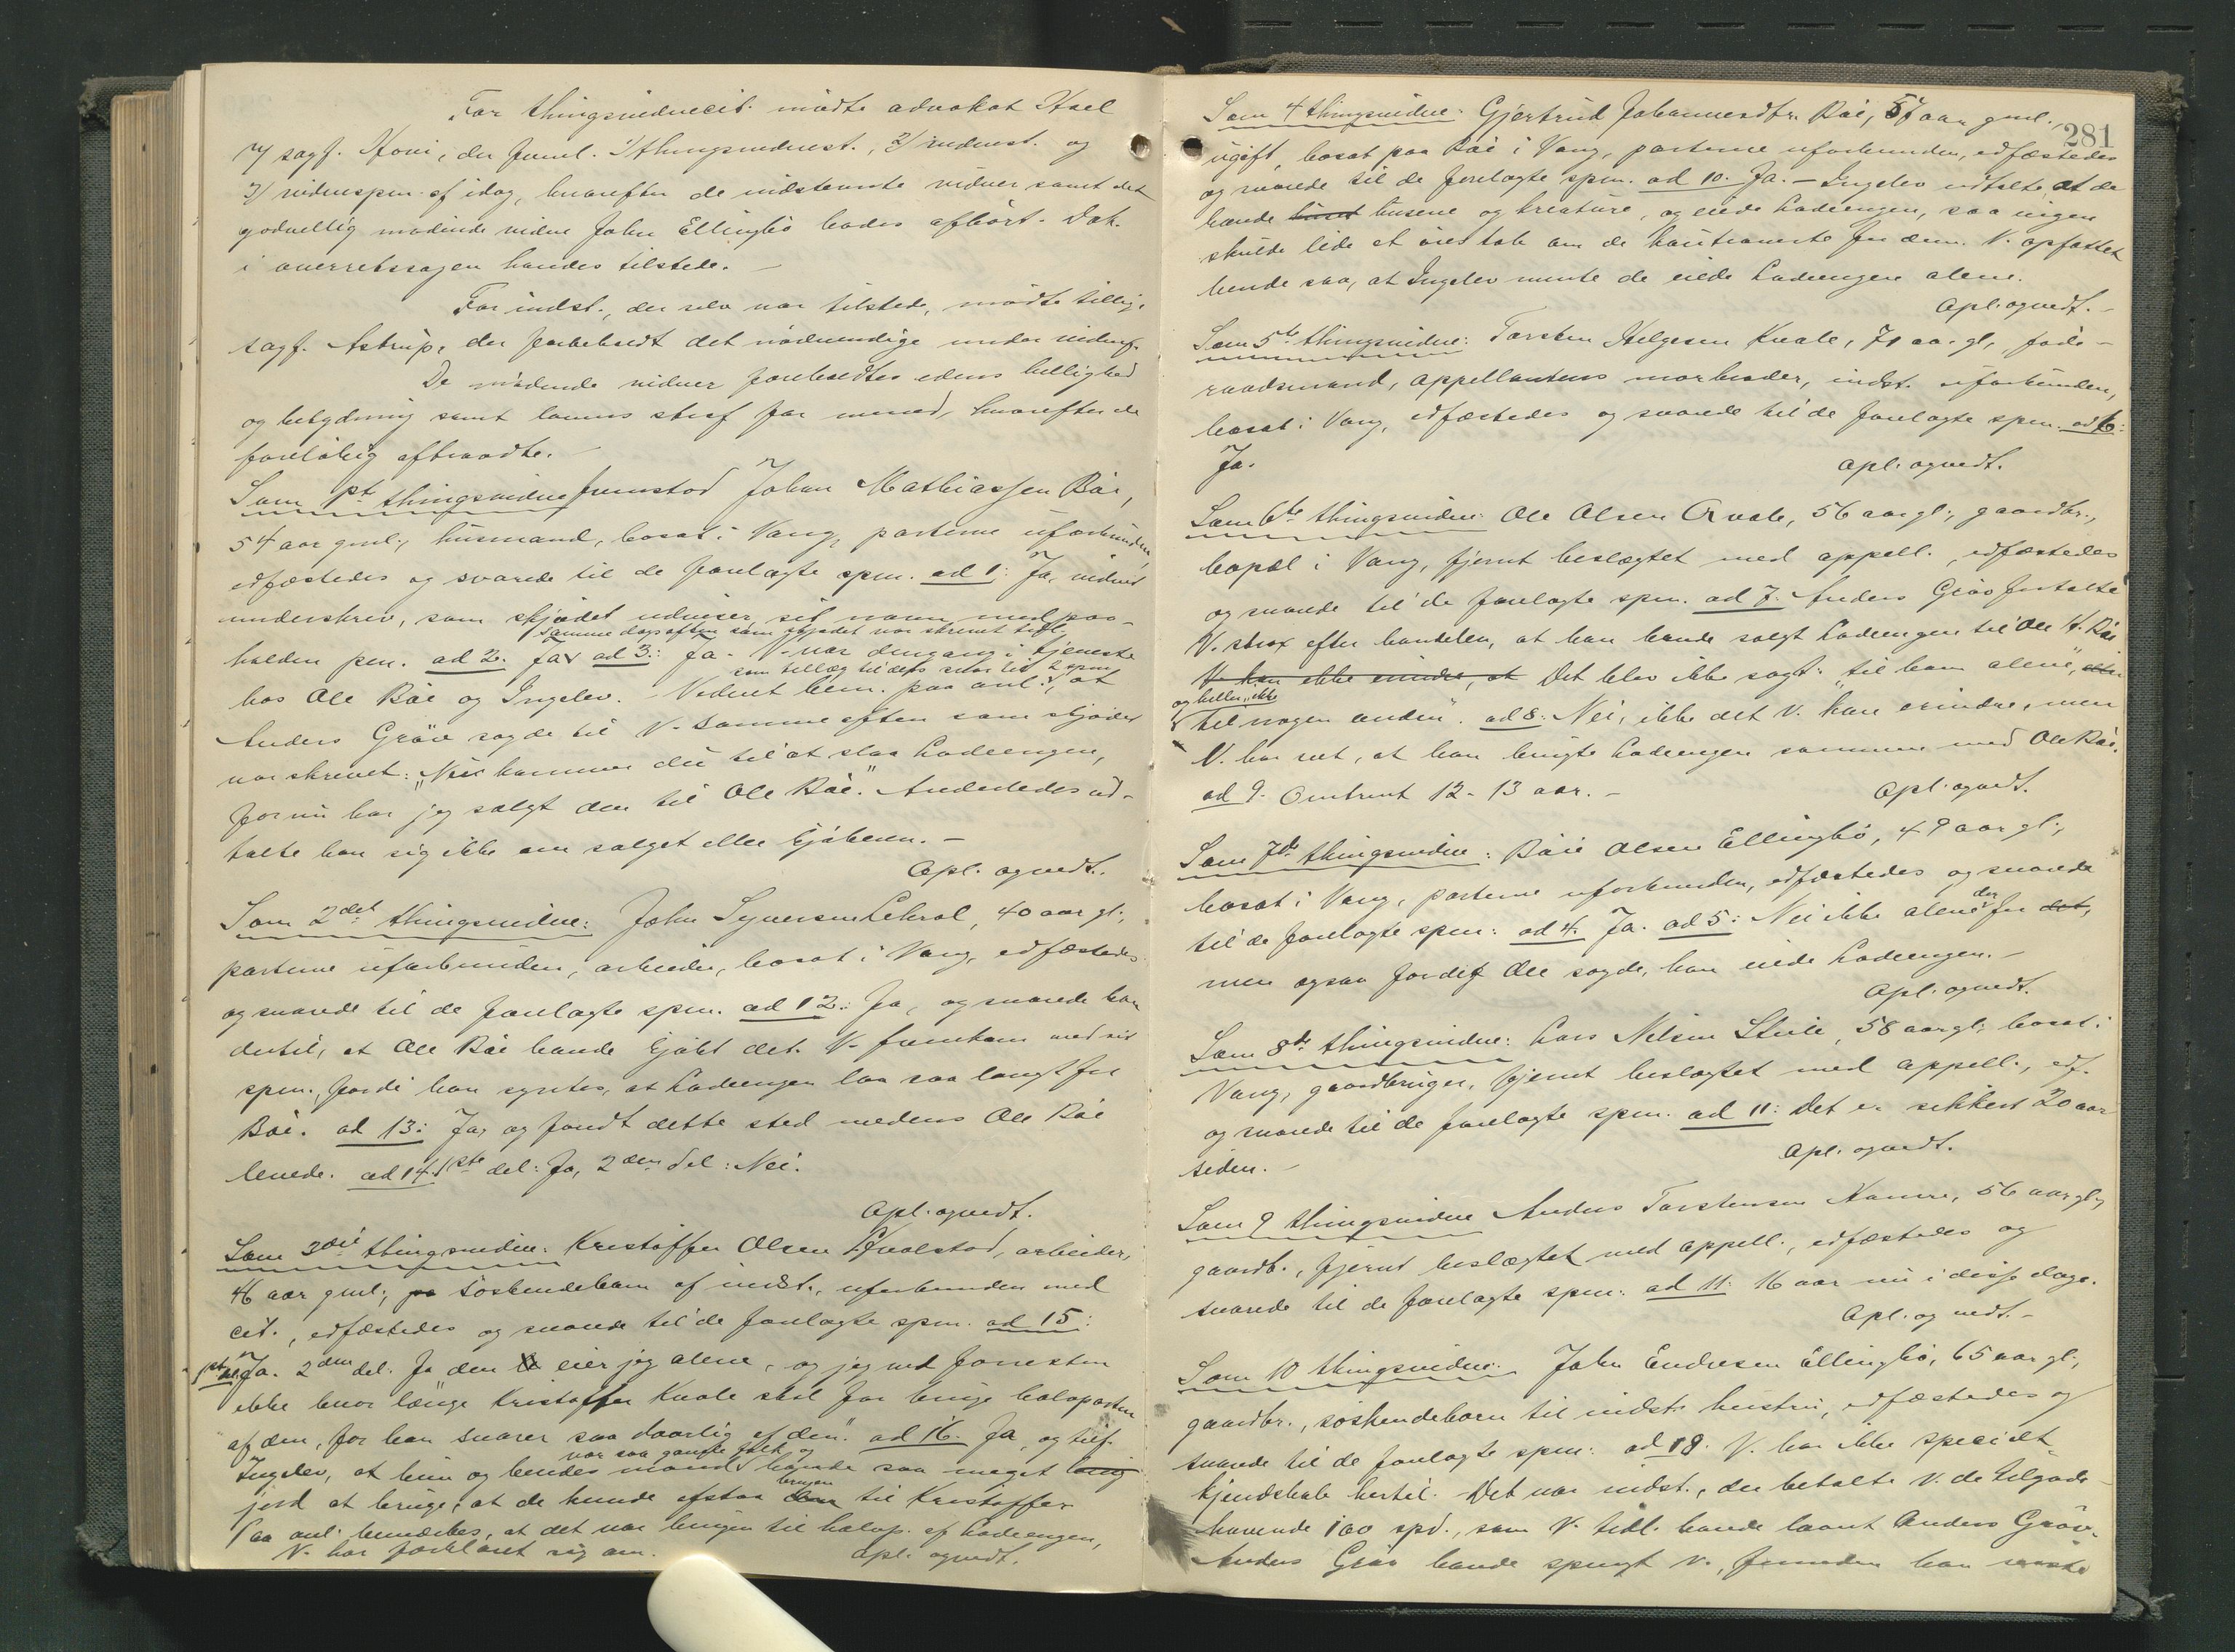 For thingsvidnecit. mødte advokat Hael
v/ sagf. Hovi, der freml. 1/ thingsvidnest., 2/ vidnest. og
3/ vidnespm. af idag, hvorefter de indstevnte vidner samt det
godvillig mødende vidne John Ellingbø bades afhørt. Dok.
i overretssagen havdes tilstede. —
For indst., der selv var tilstede, mødte tillig.
sagf. Astrup, der forbeholdt det nødvendige under vidnef.
De mødende vidner forehodtes edens hellighed
og betydning samt lovens straf for mened, hvorefter de
foreløbig aftraadte. —
Som 1ste thingsvidne fremstod Johan Mathiassen Bøe,
54 aar gml., husmand, bosat i Vang, parterne uforbunden,
edfæstedes og svarede til de forelagte spm. ad 1: Ja, vidnet
underskrev, som skjødet udviser sit navn med paa-
samme dags aften som skjødet var skrevet tidl.
holden pen. ad 2. Ja, ad 3: Ja. V. var dengang i tjeneste
som tillæg til dets svar til 2 spm.
hos Ole Bøe og Ingelev. Vidnet bem. paa anl., at
Anders Grøv sagde til V. samme aften som skjødet
var skrevet: "Nei kommer du til at slaa Ladeengen,
for nu har jeg solgt den til Ole Bøe." Anderledes ud-
talte han sig ikke om salget eller kjøberen. —
Opl. og vedt.
Som 2det thingsvidne: John Syversen Lehral, 40 aar gl.,
parterne uforbunden, arbeider, bosat i Vang, edfæstedes
og svarede til de forelagte spm. ad 12: Ja, og svarede han
dertil, at Ole Bøe havde kjøbt det. V. fremkom med sit
spm., fordi han syntes, at Ladeengen laa saa langt fra
Bøe. ad 13: Ja, og fandt dette sted medens Ole Bøe
levede. ad 14. 1ste del: Ja, 2den del: Nei.
Opl. og vedt.
Som 3die thingsvidne: Kristoffer Olsen Kvalstad, arbeider,
46 aar gml., søskendebarn af indst., uforbunden med
cit., edfæstedes og svarede til de forelagte spm. ad 15:
1ste del Ja. 2den del. Ja den eier jeg alene, og jeg ved forresten
ikke hvor længe Kristoffer Kvale skal faa bruge halvparten
af den, for han svarer saa daarlig af den". ad 16. Ja, og tilf.
var saa gamle folk og
Ingelev, at hun og hendes mand havde saa meget
brugen
jord at bruge, at de kunde afstaa til Kristoffer
Paa anl. bemærkes, at det var brugen til halvp. af Ladeengen,
V. har forklaret sig om. Opl. og vedt.
281
Som 4 thingsvidne: Gjertrud Johannesdtr. Bøe, 57 aar gml.,
ugift, bosat paa Bøe i Vang, parterne uforbunden, edfæstedes
og svarede til de forelagte spm. ad 10. Ja. — Ingelev udtalte, at de
havde husene og kreature, og eiede Ladeengen, saa ingen
skulde lide et øres tab om de kautionerte for dem. V. opfattet
hende saa, at Ingelev mente de eiede Ladeengen alene.
Opl. og vedt. —
Som 5te thingsvidne: Torsten Helgesen Kvale, 71 aar gl., føde-
raadsmand, appellantens morbroder, indst. uforbunden,
bosat i Vang, edfæstedes og svarede til de forelagte spm. ad 6:
Ja.
Opl. og vedt.
Som 6te thingsvidne: Ole Olsen Qvale, 56 aar gl., gaardbr.,
bopæl i Vang, fjernt beslægtet med appell., edfæstedes
og svarede til de forelagte spm. ad 7. Anders Grøv fortalte
V. strax efter handelen, at han havde solgt Ladeengen til Ole H. Bøe
V. kan ikke mindes, at Det blev ikke sagt: "til ham alene",
og heller ikke
"til nogen anden". ad 8: Nei, ikke det V. kan erindre, men
V. har set, at han brugte Ladeengen sammen med Ole Bøe.
ad 9. Omtrent 12-13 aar. —
Opl. og vedt.
Som 7de thingsvidne: Bøie Olsen Ellingbø, 49 aar gl.,
bosat i Vang, parterne uforbunden, edfæstedes og svarede
til de forelagte spm: ad 4. Ja. ad 5: Nei ikke alene derfor det,
men ogsaa fordi Ole sagde, han eiede Ladeengen. —
Opl. og vedt.
Som 8de thingsvidne: Lars Nilsen Steile, 58 aar gl. bosat i
Vang, gaardbruger, fjernt beslægtet med appell., edf.
og svarede til de forelagte spm. ad 11: Det er sikkert 20 aar
siden. —
Opl. og vedt.
Som 9 thingsvidne Anders Torstensen Hamre, 56 aar gl.,
gaardb., fjernt beslægtet med appell., edfæstedes og
svarede til de forelagte spm: ad 11: 16 aar nu i disse dage.
Opl. og vedt. —
Som 10 thingsvidne: John Endresen Ellingbø, 65 aar gl.,
gaardbr., søskendebarn til indst. hustru, edfæstedes og
svarede til de forelagte spm: ad 18. V. har ikke specielt
kjendskab hertil. Det var indst., der betalte V. de tilgode
havende 100 spd., som V. tidl. havde laant Anders Grøv.
Anders Grøv havde spurgt V., forinden han